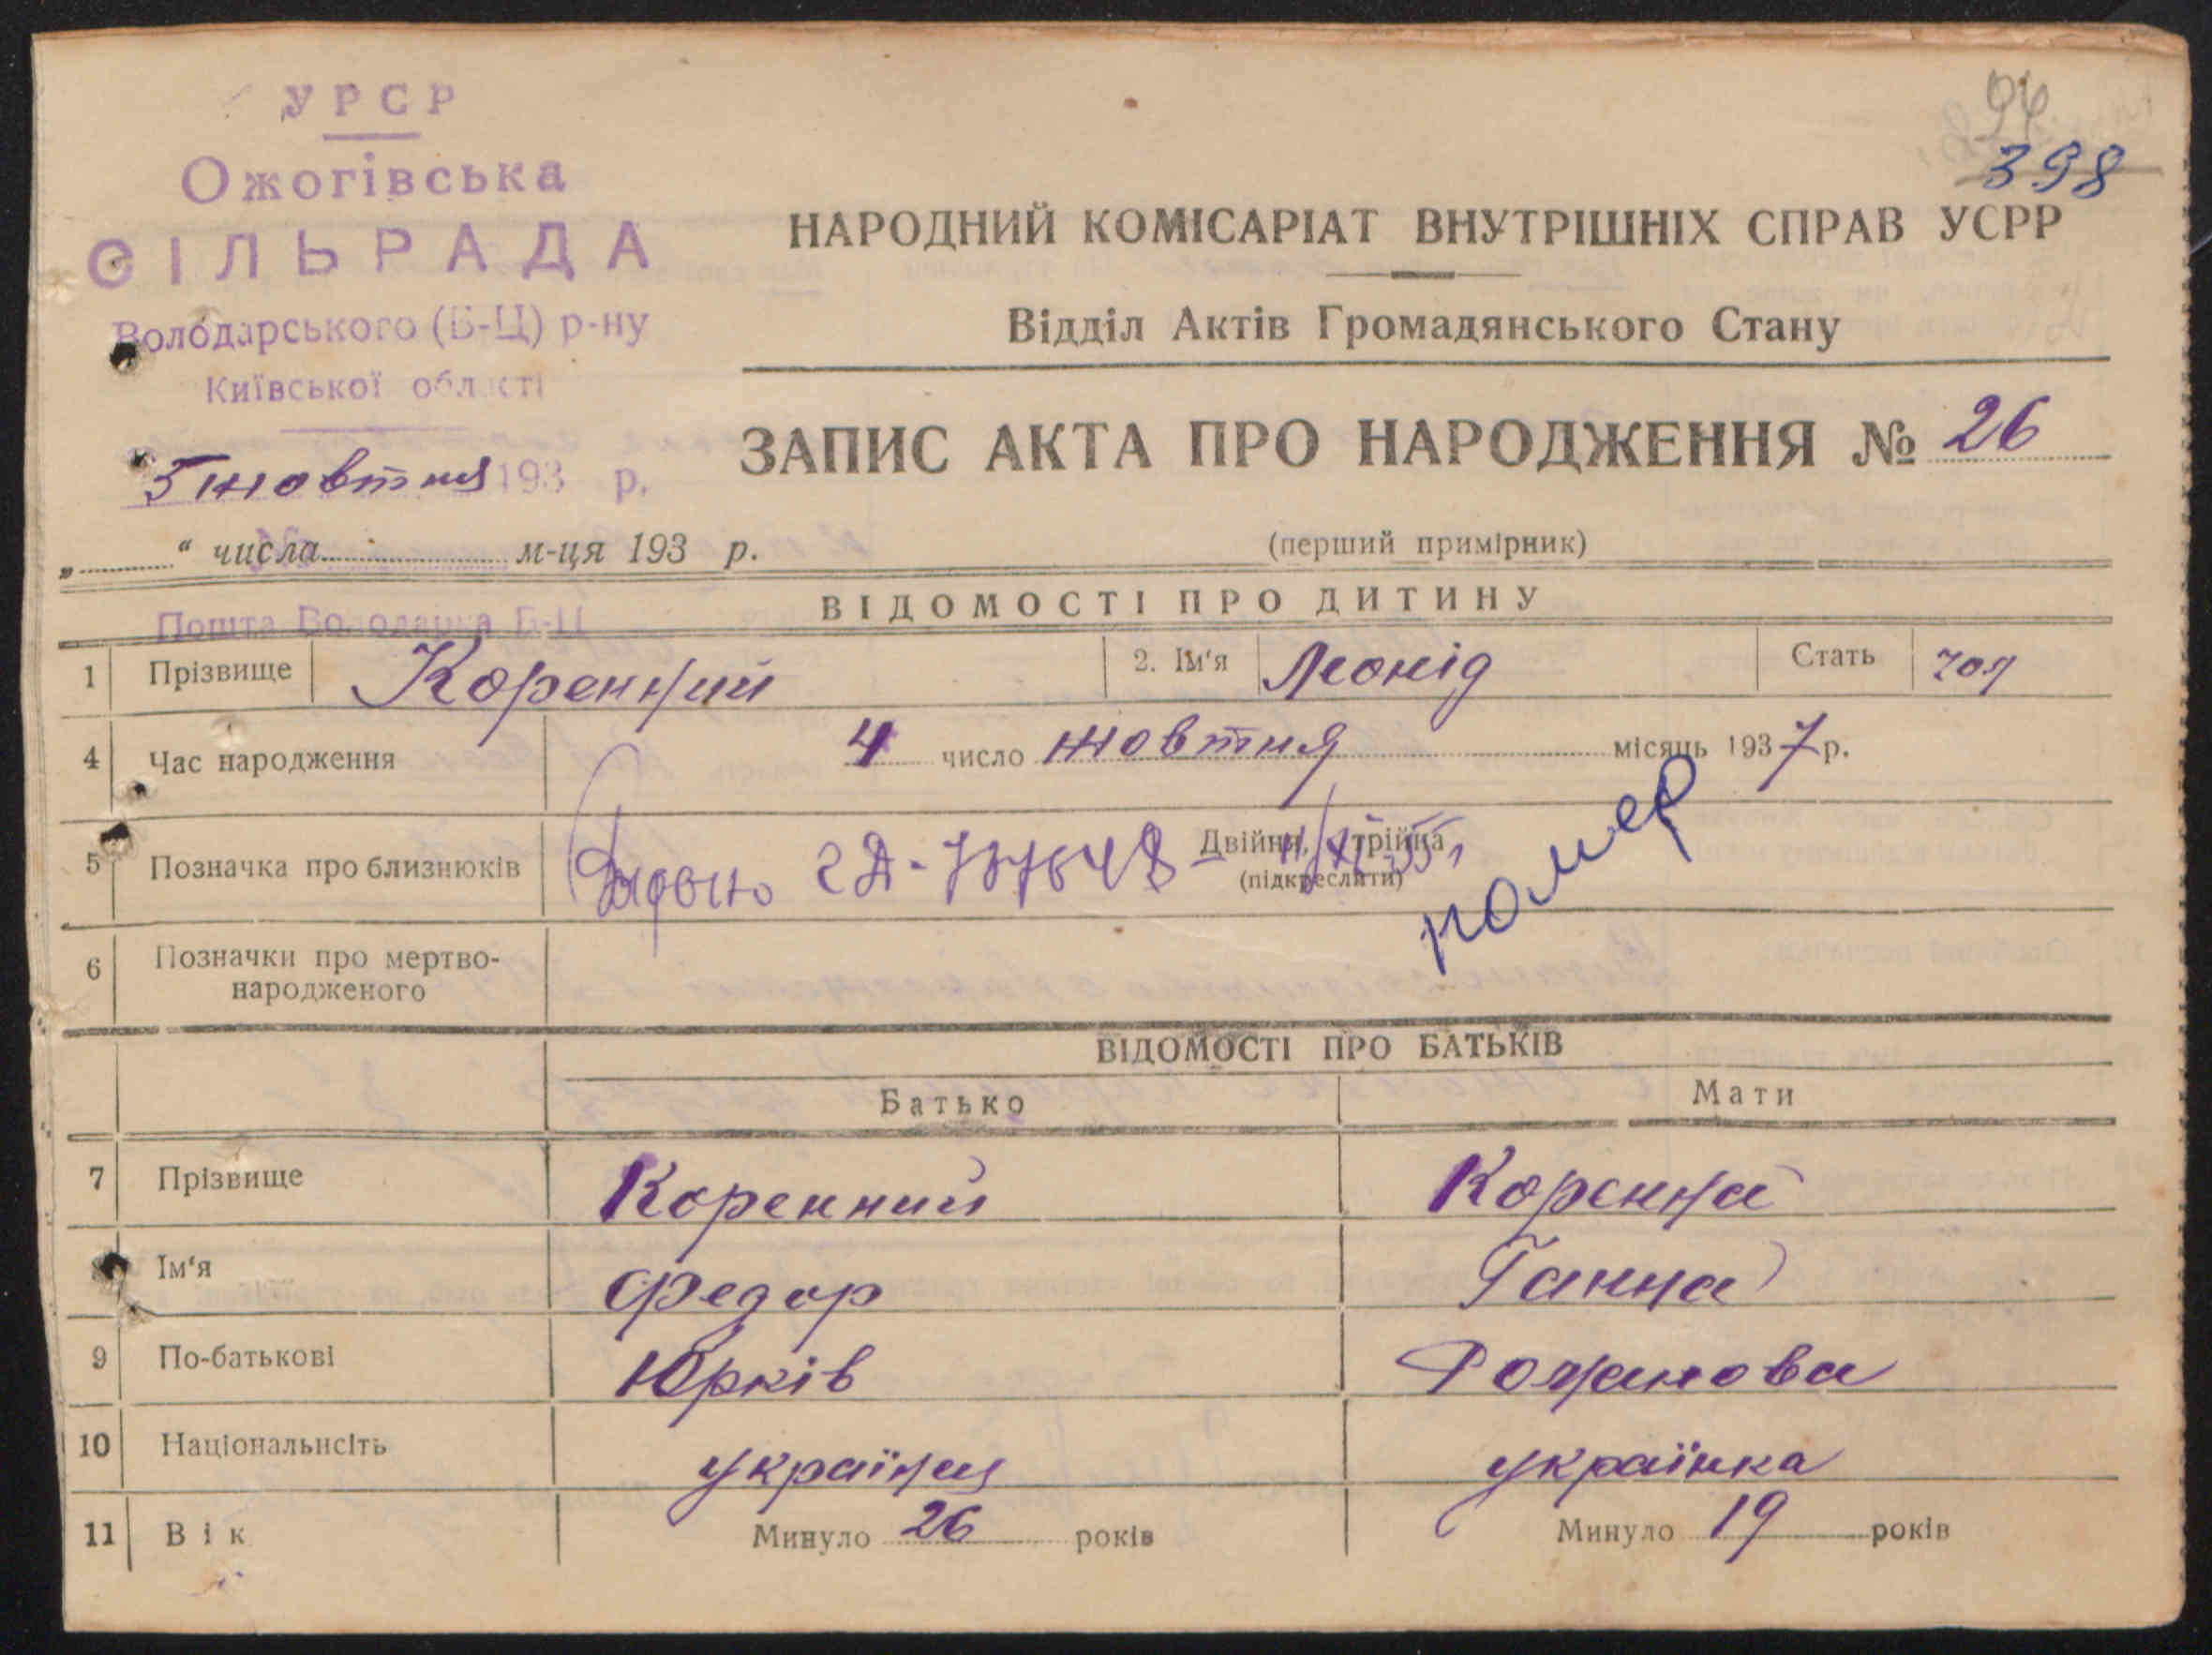 УРСР
Ожогівська
СІЛЬРАДА
Володарського (Б-Ц) р-ну
Київської області
5 жовтня 193 р.
„ “ числа м-ця 193 р.
Пошта Володарка Б-Ц
96
398
НАРОДНИЙ КОМІСАРІАТ ВНУТРІШНІХ СПРАВ УСРР
Відділ Актів Громадянського Стану
ЗАПИС АКТА ПРО НАРОДЖЕННЯ № 26
(перший примірник)
ВІДОМОСТІ ПРО ДИТИНУ
1 Прізвище Коренний 2. Ім'я Леонід Стать чол
4 Час народження 4 число жовтня місяць 1937 р.
5 Позначка про близнюків Двійня, трійня
(підкреслити)
помер
6 Позначки про мертво-
народженого
ВІДОМОСТІ ПРО БАТЬКІВ
Батько Мати
7 Прізвище Коренний Коренна
Ім'я Федор Ганна
9 По-батькові Юрків Романова
10 Національнсіть українця українка
11 Вік Минуло 26 років Минуло 19 років